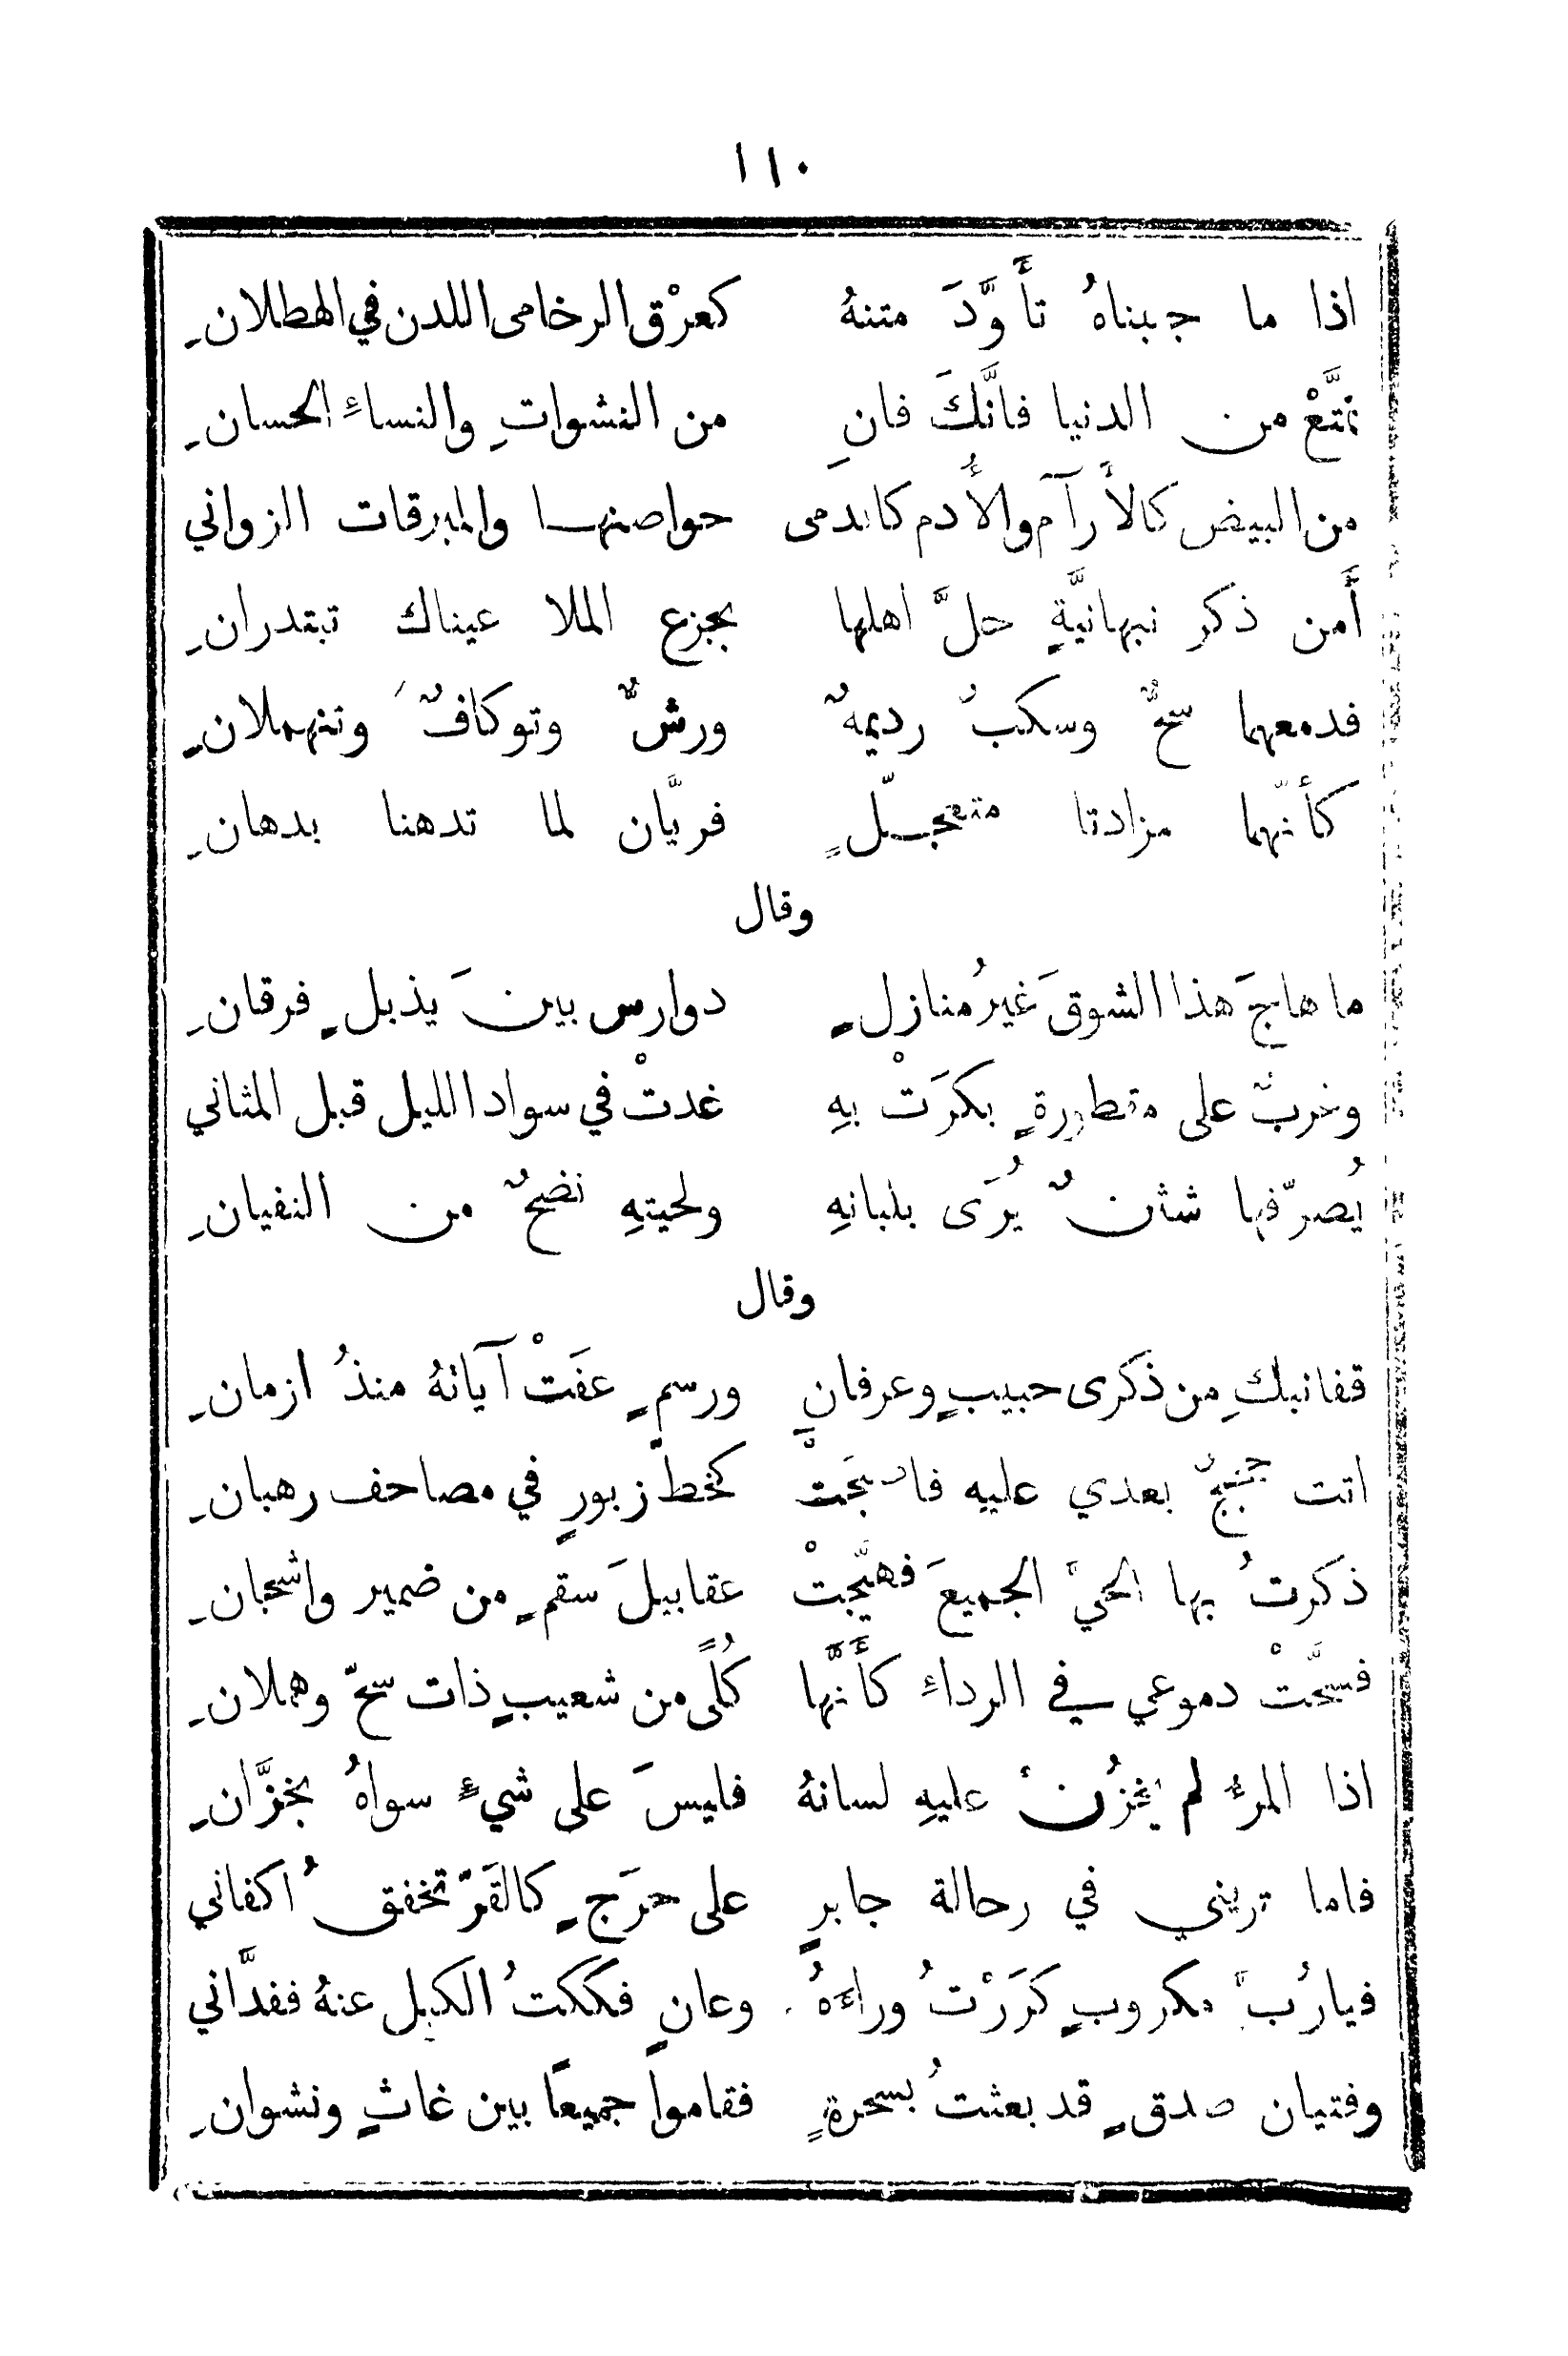 ١١٠
اذا ما جبناهُ تأَوَّدَ متنهُ كعرْق الرخامى اللدن في الهطلانِ
تمتَّعْ من الدنيا فانَّكَ فانِ من النشواتِ والنساءِ الحسانِ
من البيض كالأَرآم والأُدم كالدمى حواصنها والمبرقات الزواني
أَمن ذكر نبهانيَّةٍ حلَّ اهلها بجزع الملا عيناك تبتدرانِ
فدمعهما سحٌّ وسكبٌ رديمهٌ ورشٌّ وتوكافٌ وتنهملانِ
كأنّهما مزادتا متعجّلٍ فريَّان لما تدهنا بدهانِ
وقال
ما هاجَ هذا الشوقَ غيرُ منازلٍ دوارس بينَ يذبلٍ فرقانِ
وغربٌ على مقطورةٍ بكرَتْ بهِ غدتْ في سواد الليل قبل المثاني
يُصرّفها شثنٌ يُرَى بلبانهِ ولحيتهِ نضحٌ من النفيانِ
وقال
قفا نبكِ من ذكرى حبيبٍ وعرفانِ ورسمٍ عفَتْ آياتهُ منذُ ازمانِ
اتت حججٌ بعدي عليهِ فاصبحَتْ كخطّ زبورٍ في مصاحف رهبانِ
ذكرتُ بها الحيَّ الجميعَ فهيَّجتْ عقابيلَ سقمٍ من ضمير واشجانِ
فسحَّتْ دموعي في الرداءِ كأَنَّها كُلًى من شعيبٍ ذات سحّ وهملانِ
اذا المرءُ لم يخزُنْ عليهِ لسانهُ فليسَ على شيءٍ سواهُ بخزَّانِ
فاما تريني في رحالة جابرٍ على حرَجٍ كالقَرّ تخفقُ اكفاني
فيا رُبَّ مكروبٍ كرَرْتُ وراءَهُ وعانٍ فككتُ الكبل عنهُ ففدَّاني
وفتيان صدقٍ قد بعثتُ بسحرةٍ فقاموا جميعًا بين غاثٍ ونشوانِ